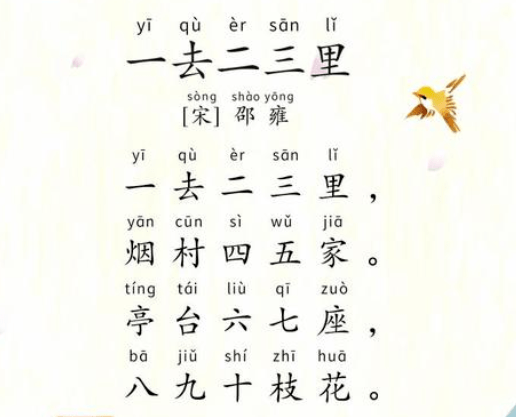 yī qù èr sān lǐ
一去二三里
sòng shào yōng
[宋] 邵雍
yī qù èr sān lǐ
一去二三里，
yān cūn sì wǔ jiā
烟村四五家。
tíng tái liù qī zuò
亭台六七座，
bā jiǔ shí zhī huā
八九十枝花。